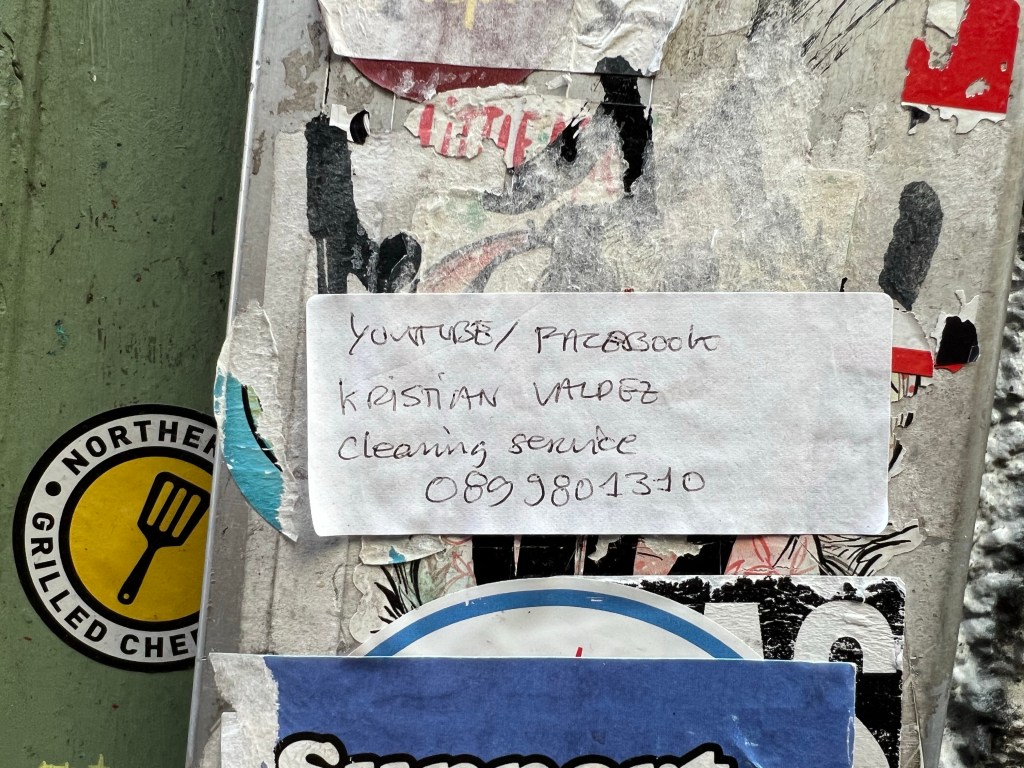 LITTLE
YOUTUBE/ FACEBOOK
KRISTIAN VALDEZ
cleaning service
0899801310
NORTHER
GRILLED CHEE
Support